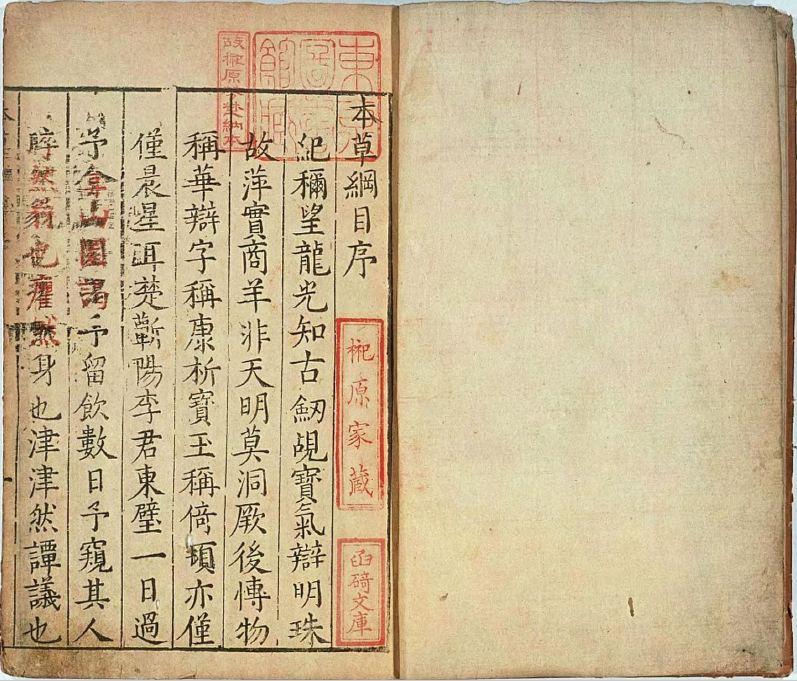 本草綱目序
紀穪望龍光知古劒覘寶氣辯明珠
故萍實商羊非天明莫洞厥後博物
稱華辯字稱康析寶玉稱倚頓亦僅
僅晨星耳楚蘄陽李君東璧一日過
予弇山園謁予留飲數日予窺其人
睟然貌也癯然身也津津然譚議也
東京圖書館藏
故榊原芳埜納本
榊原家蔵
凾碕文庫